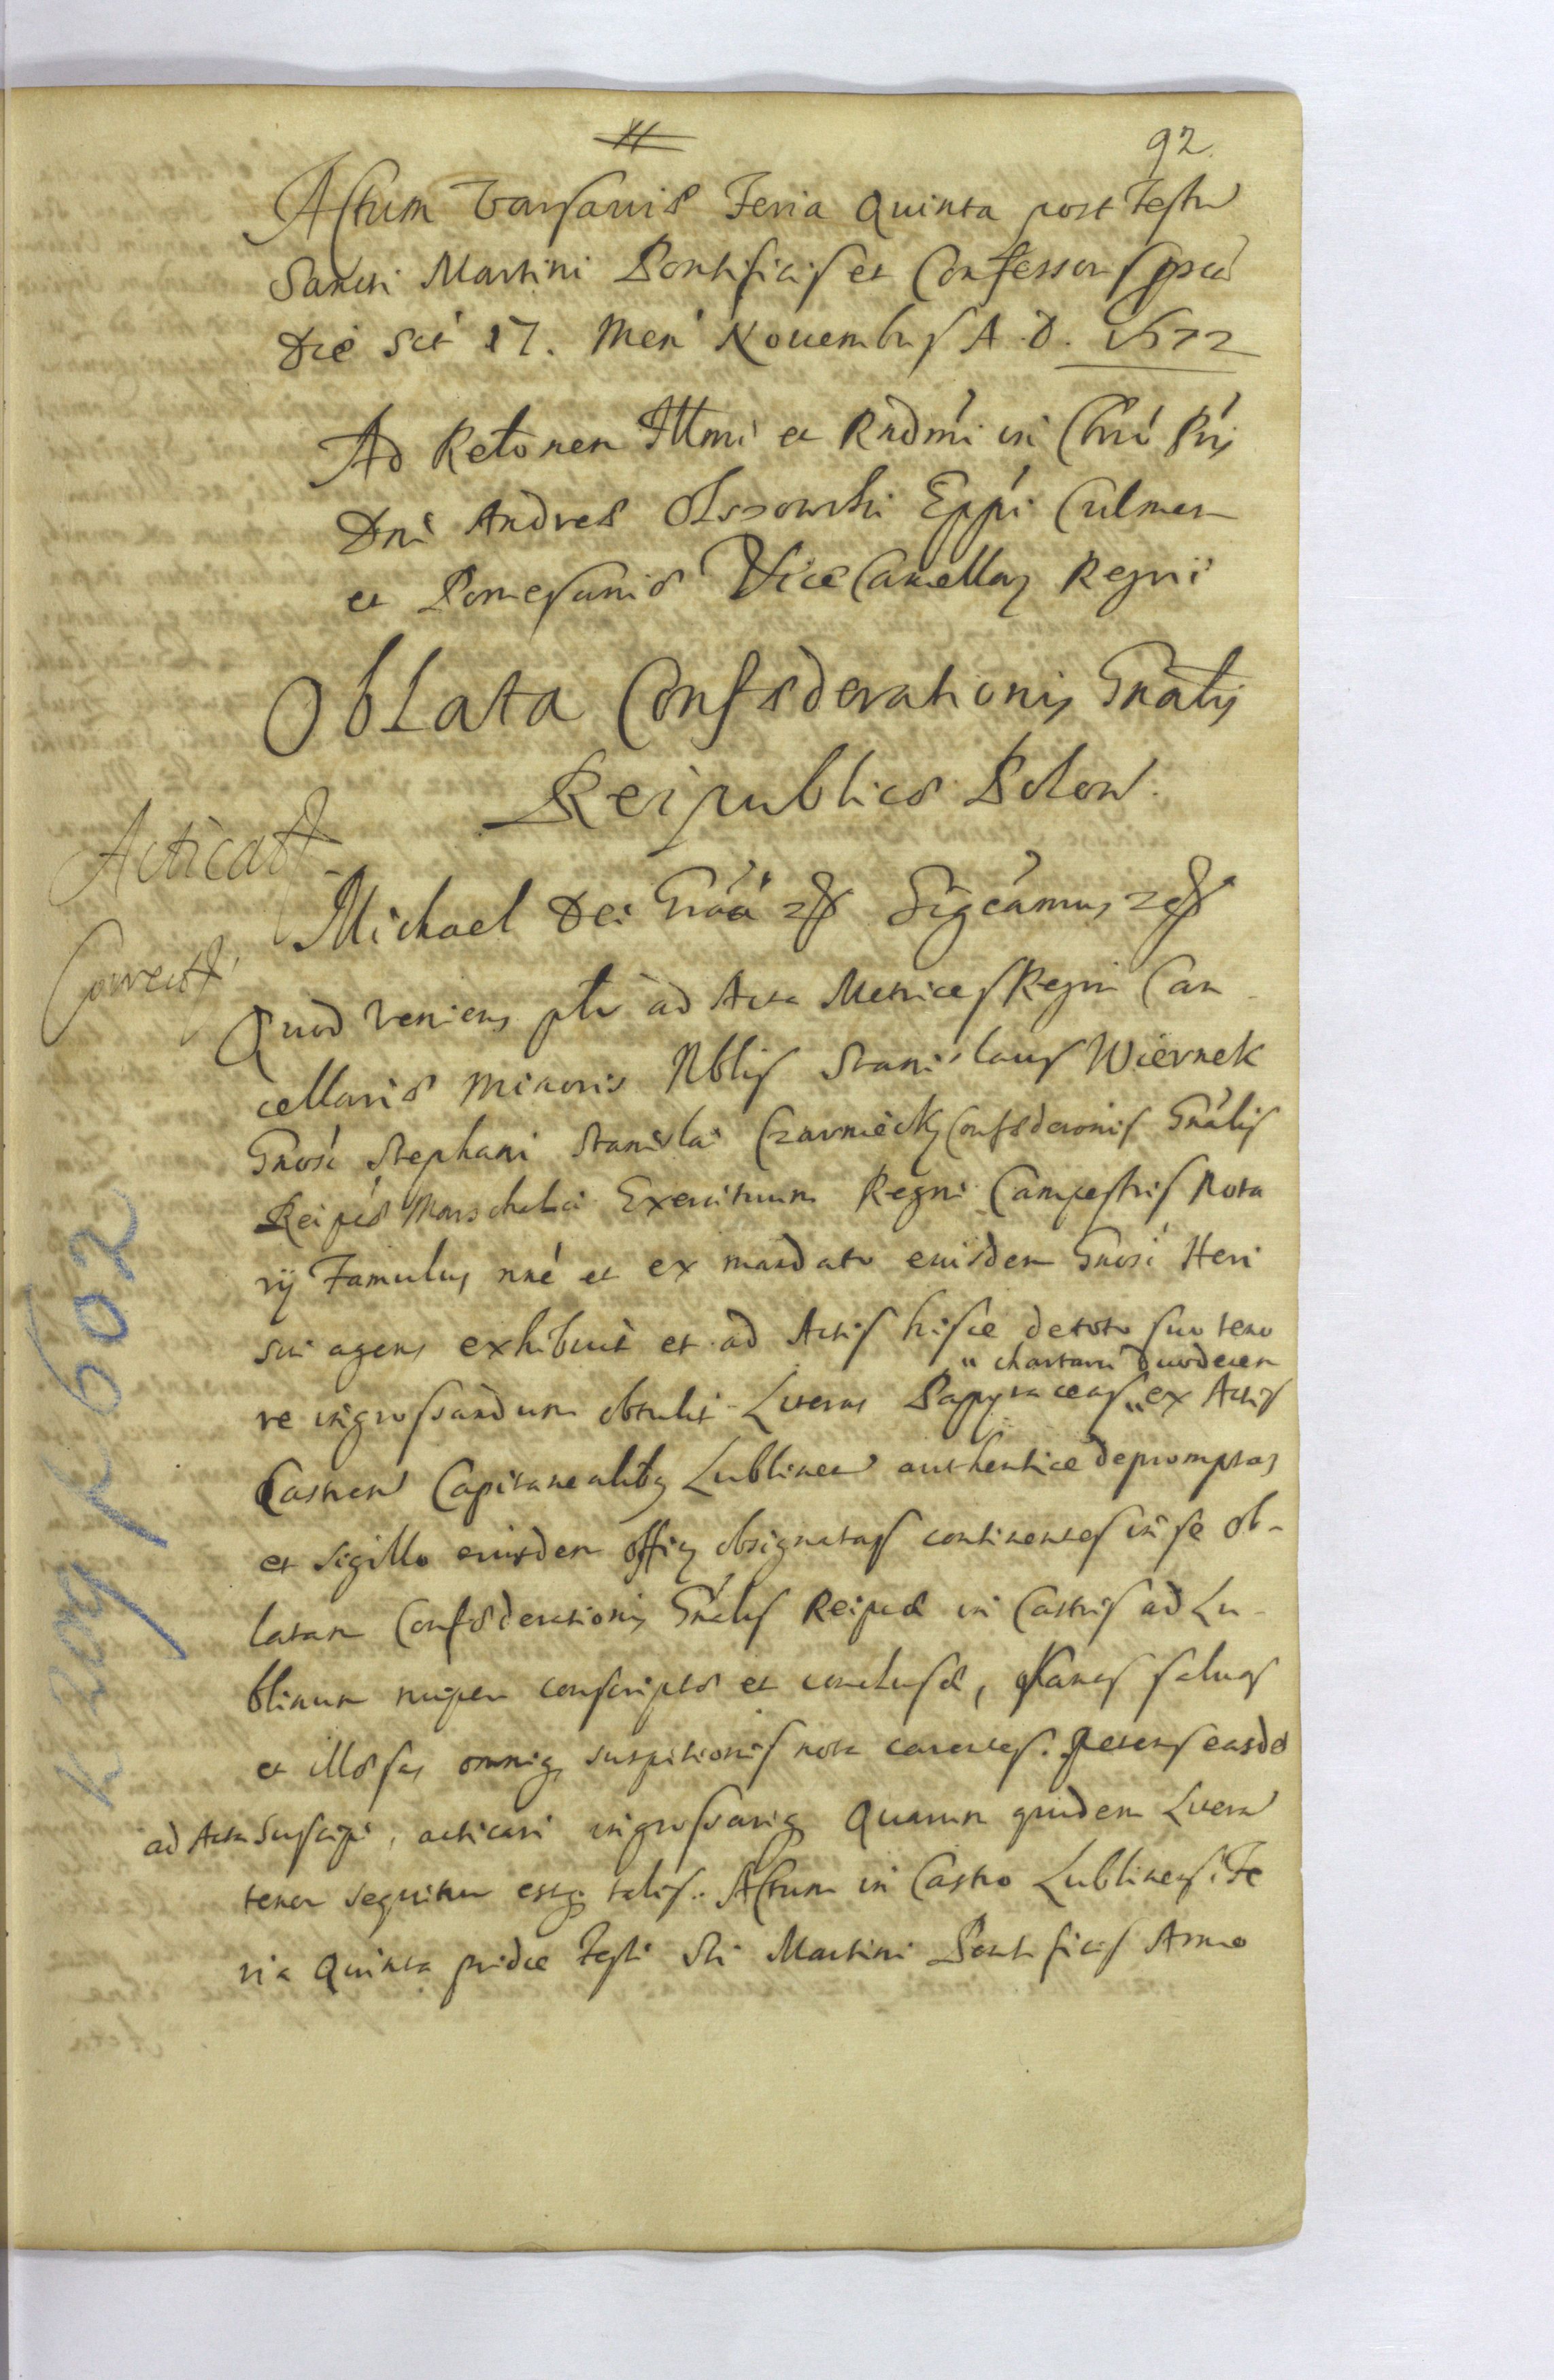 92.
Actum Varsaviæ Feria Quinta post Festū
Sancti Martini Pontificis et Confessoris pxā
Die Sct 17. Men Novembris A. D. 1672
Ad Relōnem Illmi et Rndmi in Chrō Pris
Dni Andreæ Olszowski Eppi Culmen
et Pomesaniæ ViceCancellarÿ Regni
Oblata Confæderationis Gnālis
Reipublicæ Polon.
Acticat
Michael Dei Grāā Sigcāmus
Correct
Quod veniens ad Acta Metrices Regni Can
cellariæ Minoris Nblis Stanislaus Wiernek
Gnosi Stephani Stanislai Czarniecky Confæderonis Gnālis
Reipcæ Marschalci Exercituum Regni Campestris Nota
rij Famulus nñe et ex mandato eiusdem Gnosi Heri
sui agens exhibuit et ad Actis hisce de toto suo teno
" chartarū duodecem
re ingrossandum obtulit Literas Papyraceas " ex Actis
Castren Capitanealibq Lublinen authentice depromptas
et Sigillo eiusdem offÿ obsignatas continentes in se ob-
latam Confæderationis Gnālis Reipcæ in Castris ad Lu-
blinum nuper conscriptæ et conclusæ, sanas salvas
et illæsas omniq suspitionis nota carentes. Petens easdē
ad Acta suscipi, acticari ingrossariq Quarum quidem Literarū
tenor sequitur estq talis. Actum in Castro Lublinensi Fe
ria Quinta pridie Festi Sti Martini Pontificis Anno
k 209 k 602